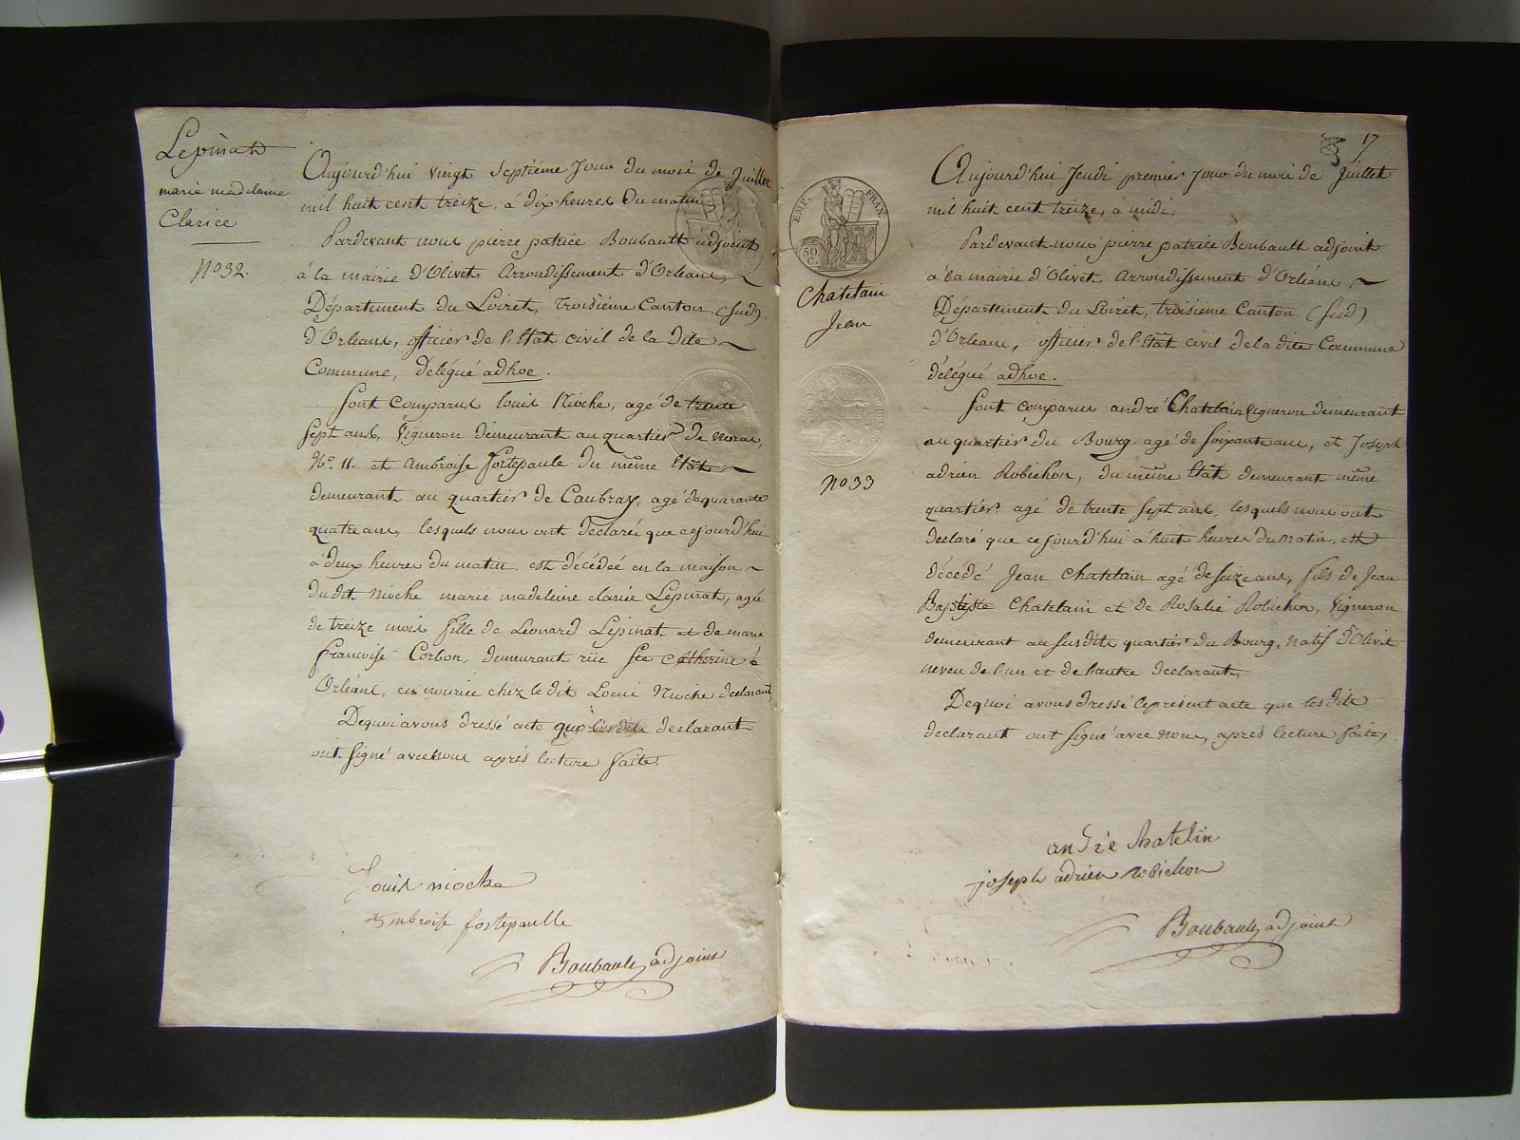 Lepinat
marie madeleine
Clarice
No 32.
Aujourd'hui vingt septième Jour du mois de Juillet
mil huit cent treize, à dix heures du matin
Pardevant nous pierre patrice Boubault adjoint
à la mairie d'Olivet, Arrondissement d'Orléans,
Département du Loiret, troisième Canton (sud)
d'Orléans, officier de l'Etat civil de la dite
Commune, délégué adhoc.
sont comparus louis Nioche, agé de trente
sept ans, Vigneron demeurant au quartier de
No. 11. et Ambroise fortepaule du même Etat
demeurant au quartier de Caubray, agé de quarante
quatre ans, lesquels nous ont déclaré que cejourd'hui
à deux heures du matin est décédée en la maison
du dit Nioche marie madeleine clarice Lepinat, agée
de treize mois fille de Léonard Lepinat et de marie
françoise Corbon, demeurant rüe ste catherine à
Orléans, en nourice chez le dit Louis Nioche declarant
Dequoi avons dressé acte que les dits declarant
ont signé avec nous après lecture faite.
Louis nioche
Ambroise fortepaulle
Boubault adjoint
17
EMP. FRAN
50 C.
Chatelain
Jean
No 33
Aujourd'hui Jeudi premier Jour du mois de Juillet
mil huit cent treize, à midi.
Pardevant nous pierre patrice Boubault adjoint
à la mairie d'Olivet Arrondissement d'Orléans,
Département du Loiret, troisieme Canton (sud)
d'Orléans, officier de l'Etat civil de la dite Commune
délégué adhoc.
sont comparus andré Chatelain Vigneron demeurant
au quartier du Bourg agé de soixante ans, et Joseph
adrien Robichon, du même Etat demeurant même
quartier agé de trente sept ans, lesquels nous ont
déclaré que ce jourd'hui à huit heures du matin, est
décédé Jean Chatelain agé de seize ans, fils de Jean
Baptiste Chatelain et de Rosalie Robichon, Vigneron
demeurant au susdit quartier du Bourg, natif d'Olivet
neveu de l'un et de l'autre declarant.
Dequoi avons dressé le present acte que les dits
declarant ont signé avec nous, après lecture faite,
andré chatelin
joseph adrien robichon
Boubault adjoint